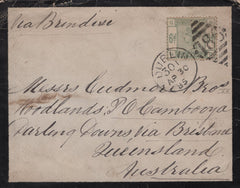 Via Brindisi
Messrs Cudmore Bros
Woodlands, P.O Cambooya
Darling Downs via Brisbane
Queensland
Australia
AP 30